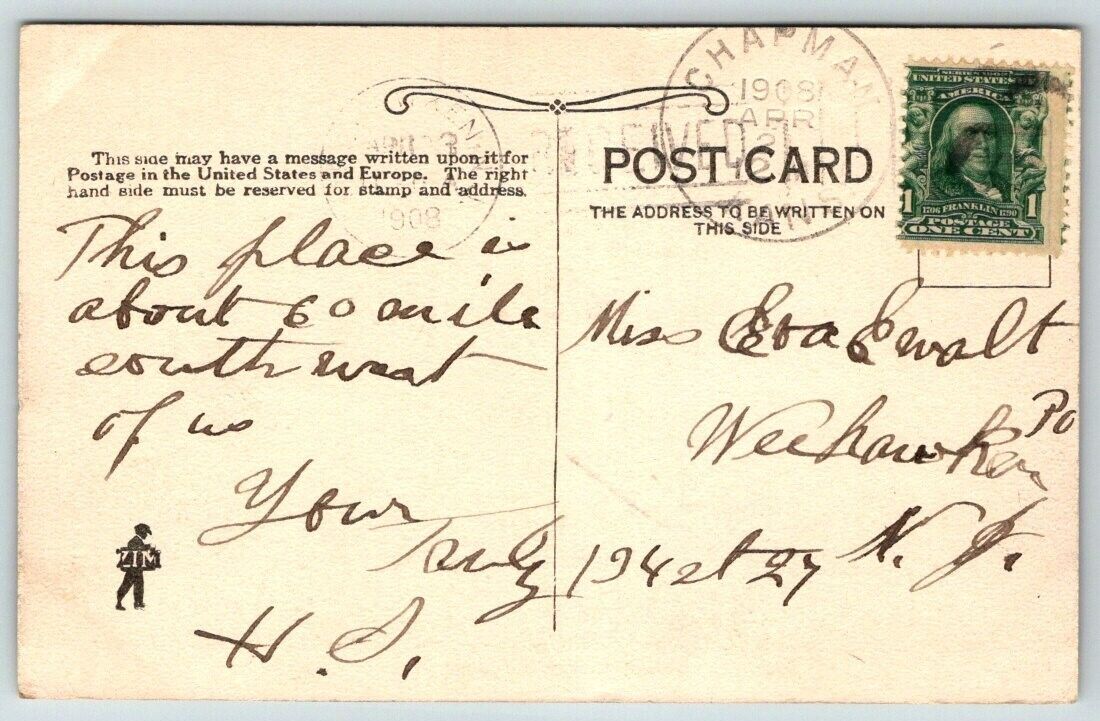 CHAPMAN
1908
APR
2
KANS.
RECEIVED
APR 3
1908
SERIES 1902
UNITED STATES OF
AMERICA
1 1
1706 FRANKLIN 1790
POSTAGE
ONE CENT
This side may have a message written upon it for
Postage in the United States and Europe. The right
hand side must be reserved for stamp and address.
POST CARD
THE ADDRESS TO BE WRITTEN ON
THIS SIDE
This place is
about 60 mile
south west
of us
Your
Truly
H. S.
ZIM
Miss Eva Ewalt
Weehawken Po
N. J.